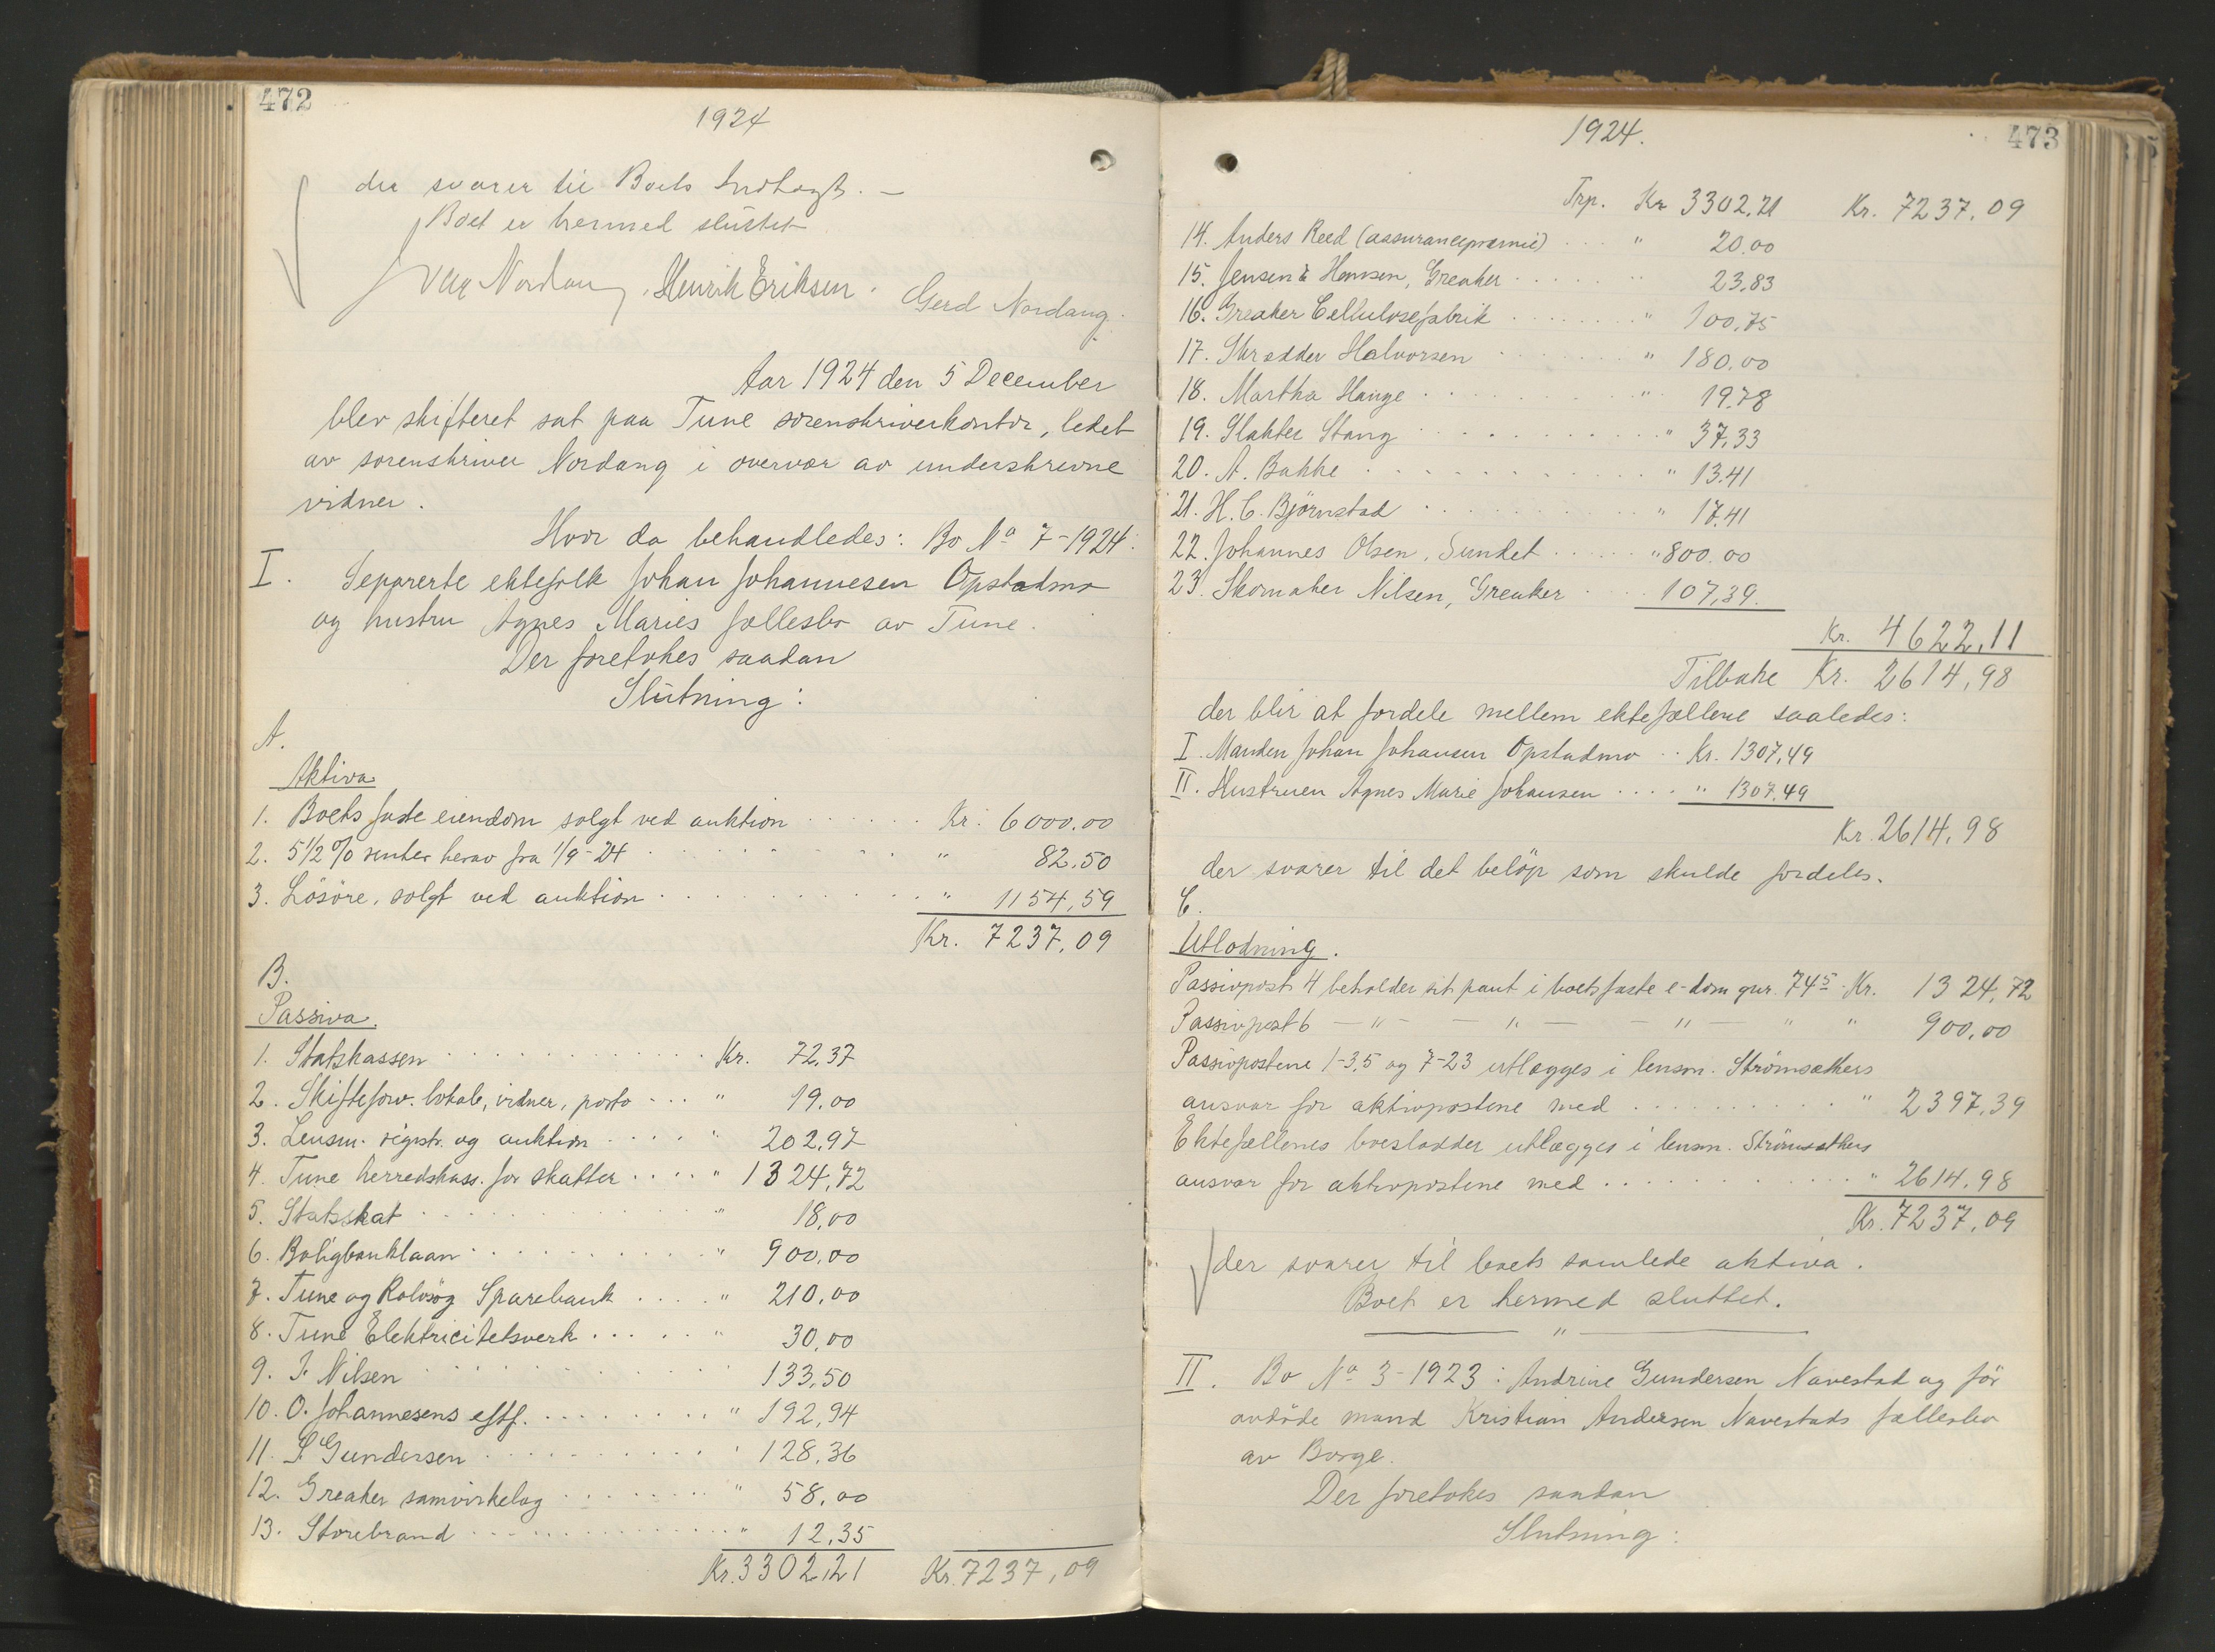 472
1924
der svarer til Boets Indtægt. —
Boet er hermed sluttet
Nordang. Henrik Eriksen. Gerd Nordang.
Aar 1924 den 5 December
blev skifteret sat paa Tune sorenskriverkontor, ledet
av sorenskriver Nordang i overvær av underskrevne
vidner.
Hvor da behandledes: Bo No 7-1924:
I. Separerte ektefolk Johan Johannesen Opstadmo
og hustru Agnes Maries fællesbo av Tune.
Der foretokes saadan
Slutning:
A.
Aktiva
1. Boets faste eiendom solgt ved auktion . . . . . . Kr. 6000.00
2. 5 1/2 % renter herav fra 1/9-24 . . . . . . " 82.50
3. Lösöre, solgt ved auktion . . . . . . " 1154,59
Kr. 7237,09
B.
Passiva.
1. Statskassen . . . . . . Kr. 72,37
2. Skifteforv. lokale, vidner, porto . . . " 19.00
3. Lensm. registr. og auktion . . . . " 202,97
4. Tune herredskass. for skatter . . . . " 1324,72
5. Statsskat . . . . . . " 18,00
6. Boligbanklaan . . . . . . " 900,00
7. Tune og Rolvsög Sparebank . . . . " 210,00
8. Tune Elektricitetsverk . . . . . " 30,00
9. J. Nilsen . . . . . . 133,50
10. O. Johannesens eftf. . . . . . . " 192,94
11. S. Gundersen . . . . . . " 128,36
12. Greaker samvirkelag . . . . . . " 58,00
13. Storebrand . . . . . . " 12,35
Kr. 3302,21 Kr. 7237,09
1924.
473
Trp. Kr 3302,21 Kr. 7237,09
14. Anders Reed (assurancepræmie) . . . " 20.00
15. Jensen & Hansen, Greaker . . . . . " 23,83
16. Greaker Cellulosefabrik . . . . . . " 100,75
17. Skrædder Halvorsen . . . . . . " 180,00
18. Martha Hauge . . . . . . " 19,78
19. Slakter Stang . . . . . . " 37,33
20. A. Bakke . . . . . . " 13,41
21. H. C. Björnstad . . . . . . " 17,41
22. Johannes Olsen, Sundet . . . . . " 800.00
23. Skomaker Nilsen, Greaker . . . . 107,39.
Kr. 4622,11
Tilbake Kr. 2614,98
der blir at fordele mellem ektefællene saaledes:
I. Manden Johan Johansen Opstadmo . . Kr. 1307,49
II. Hustruen Agnes Marie Johansen . . . . " 1307,49
Kr. 2614,98
der svarer til det belöp som skulde fordeles.
C.
Utlodning.
Passivpost 4 beholder sit pant i boets faste e-dom gnr. 74⁵ Kr. 1324,72
Passivpost 6 — " — — " — — " " " 900,00
Passivpostene 1-3,5 og 7-23 utlægges i lensm. Strömsæthers
ansvar for aktivpostene med . . . . . . " 2397,39
Ektefællenes boeslodder utlægges i lensm. Strömsæthers
ansvar for aktivpostene med . . . . . . " 2614,98
Kr. 7237,09
der svarer til boets samlede aktiva.
Boet er hermed sluttet.
— " —
II. Bo No 3-1923: Andrine Gundersen Navestad og för
avdöde mand Kristian Andersen Navestads fællesbo
av Borge.
Der foretokes saadan
Slutning: